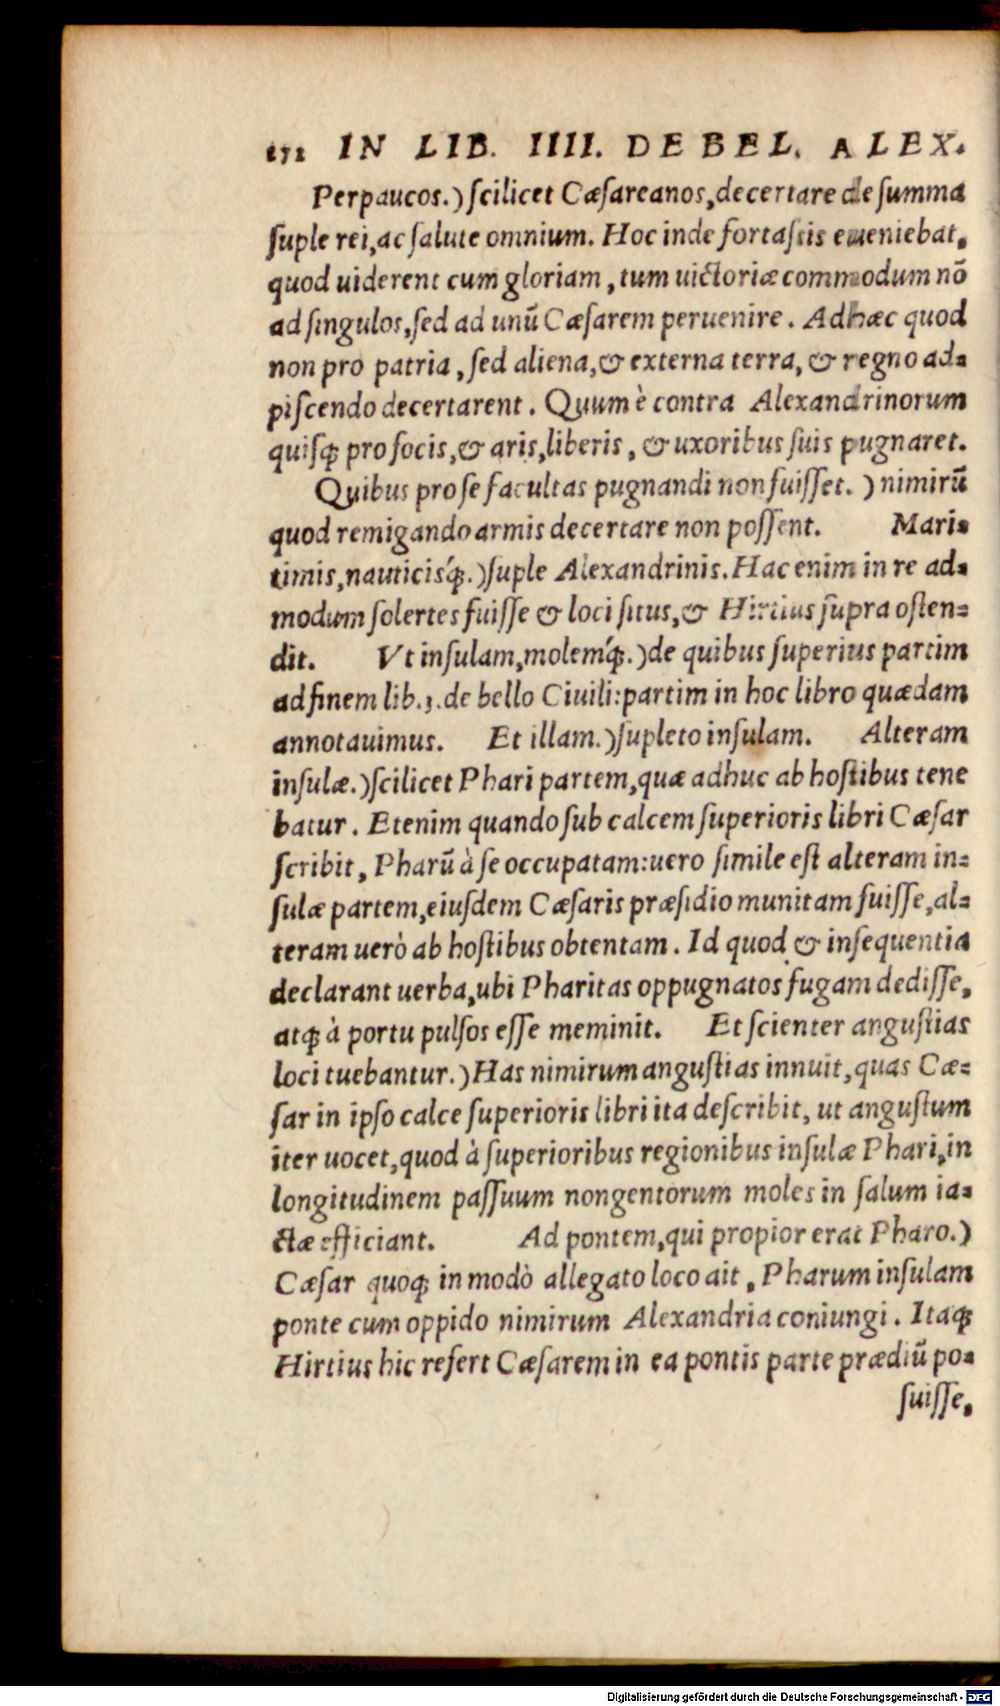 172 IN LIB. IIII. DE BEL. ALEX.
Perpaucos.) ſcilicet Cæſareanos, decertare de ſumma
ſuple rei, ac ſalute omnium. Hoc inde fortaſsis eueniebat,
quod uiderent cum gloriam, tum uictoriæ commodum nō
ad ſingulos, ſed ad unū Cæſarem peruenire. Adhæc quod
non pro patria, ſed aliena, & externa terra, & regno ad-
piſcendo decertarent. Quum è contra Alexandrinorum
quiſq; pro focis, & aris, liberis, & uxoribus ſuis pugnaret.
Quibus pro ſe facultas pugnandi non fuiſſet.) nimirū
quod remigando armis decertare non poſſent. Mari-
timis, nauticisq́;.) ſuple Alexandrinis. Hac enim in re ad-
modum ſolertes fuiſſe & loci ſitus, & Hirtius ſupra oſten-
dit. Vt inſulam, molemq́;.) de quibus ſuperius partim
ad finem lib. 3. de bello Ciuili: partim in hoc libro quædam
annotauimus. Et illam.) ſupleto inſulam. Alteram
inſulæ.) ſcilicet Phari partem, quæ adhuc ab hoſtibus tene
batur. Etenim quando ſub calcem ſuperioris libri Cæſar
ſcribit, Pharū à ſe occupatam: uero ſimile eſt alteram in-
ſulæ partem, eiuſdem Cæſaris præſidio munitam fuiſſe, al-
teram uerò ab hoſtibus obtentam. Id quod & inſequentia
declarant uerba, ubi Pharitas oppugnatos fugam dediſſe,
atq; à portu pulſos eſſe meminit. Et ſcienter anguſtias
loci tuebantur.) Has nimirum anguſtias innuit, quas Cæ-
ſar in ipſo calce ſuperioris libri ita deſcribit, ut anguſtum
iter uocet, quod à ſuperioribus regionibus inſulæ Phari, in
longitudinem paſſuum nongentorum moles in ſalum ia-
ctæ efficiant. Ad pontem, qui propior erat Pharo.)
Cæſar quoq; in modò allegato loco ait, Pharum inſulam
ponte cum oppido nimirum Alexandria coniungi. Itaq;
Hirtius hic refert Cæſarem in ea pontis parte prædiū po-
ſuiſſe,
Digitalisierung gefördert durch die Deutsche Forschungsgemeinschaft - DFG